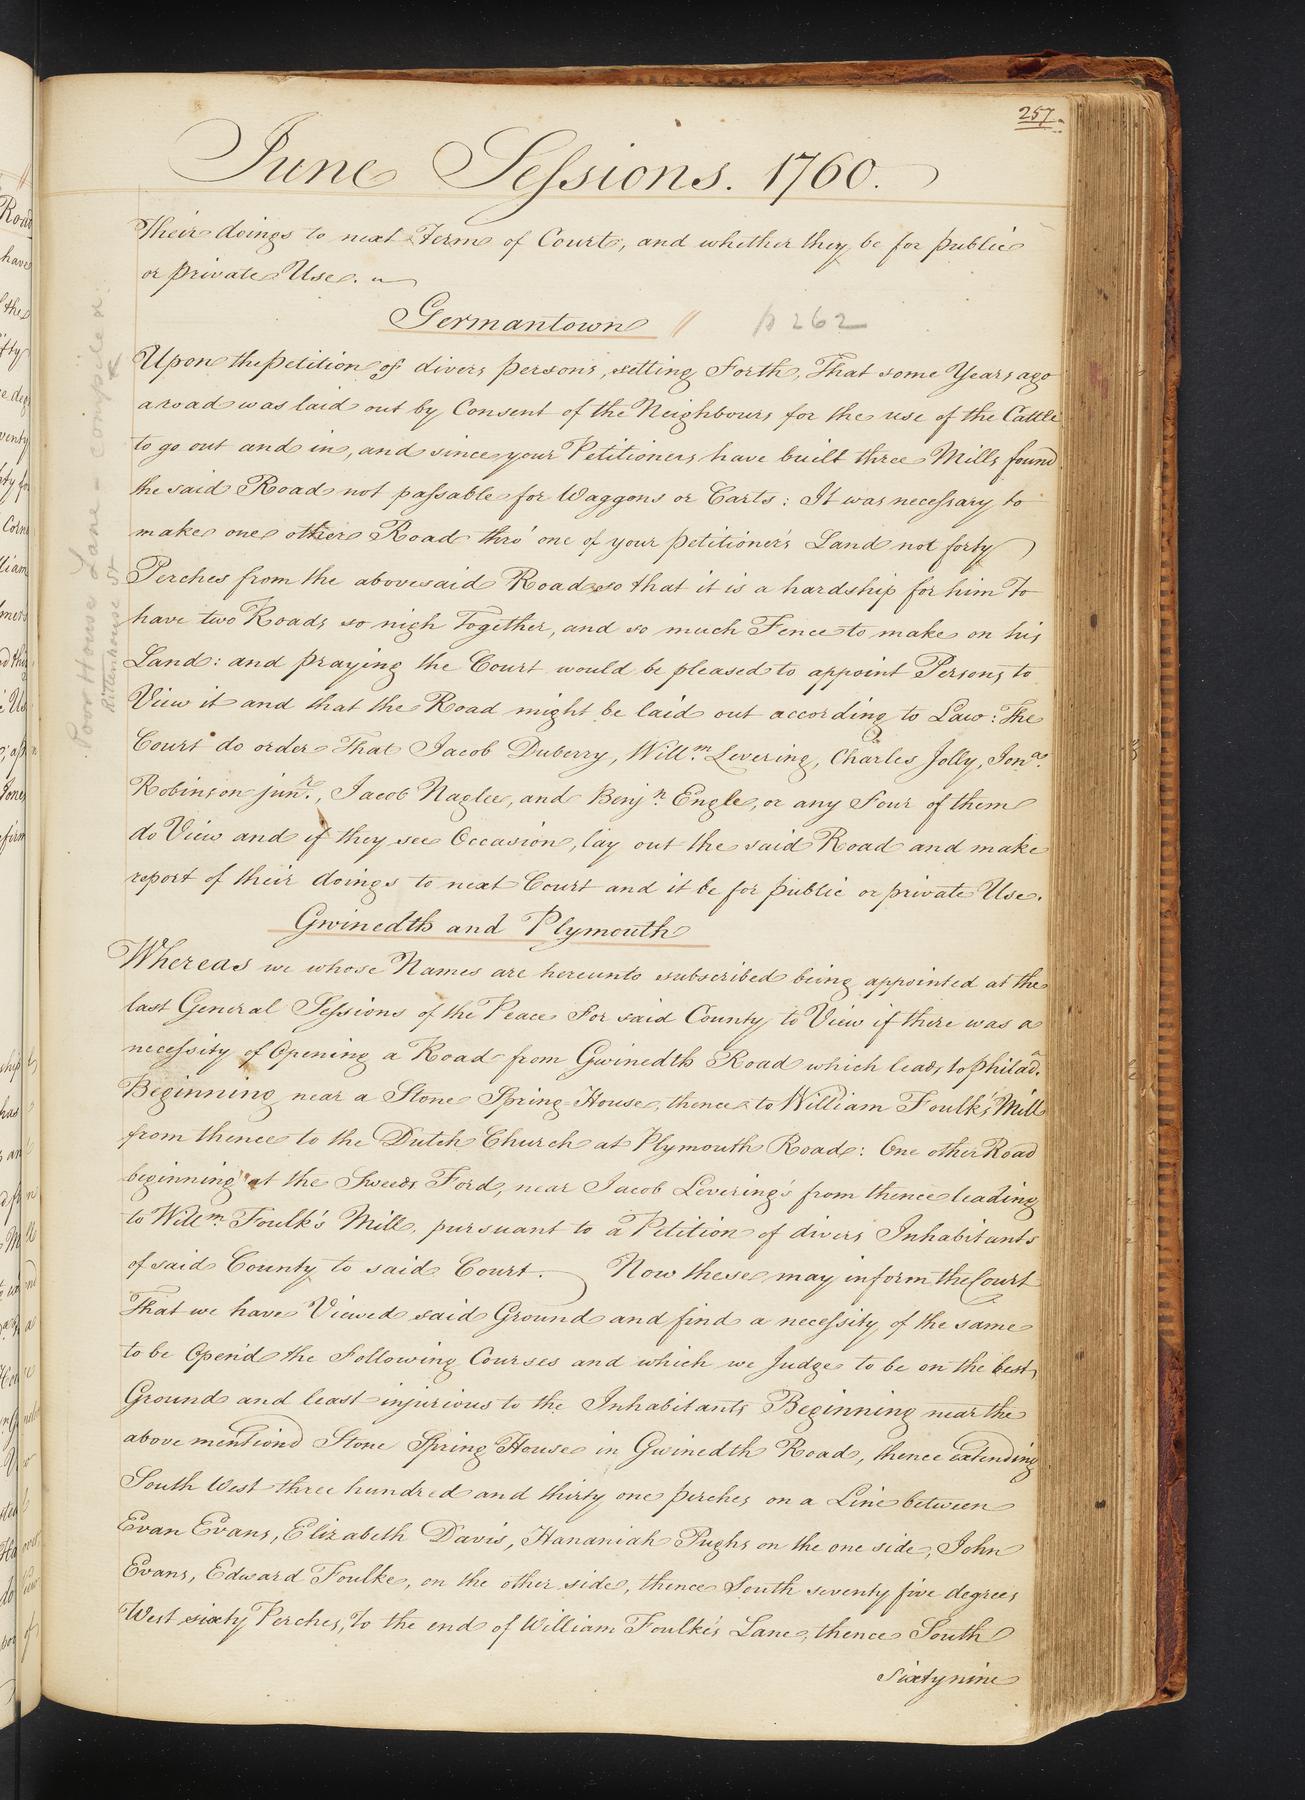 257.
June Sessions. 1760.
Their doings to next Term of Court, and whether they be for public
or private Use.
Germantown // p 262
Upon the petition of divers persons, setting Forth, That some Years ago
a road was laid out by Consent of the Neighbours for the use of the Cattle
to go out and in, and since your Petitioners have built three Mills found
the said Road not passable for Waggons or Carts: It was necessary to
make one other Road thro' one of your petitioner's Land not forty
Perches from the abovesaid Road so that it is a hardship for him To
have two Roads so nigh Together, and so much Fence to make on his
Land: and praying the Court would be pleased to appoint Persons to
View it and that the Road might be laid out according to Law: The
Court do order That Jacob Duberry, Will.m Levering, Charles Jolly, Jona.
Robinson junr., Jacob Naglee, and Benj.n Engle, or any Four of them
do View and if they see Occasion, lay out the said Road and make
report of their doings to next Court and it be for public or private Use.
Gwinedth and Plymouth
Whereas we whose Names are hereunto subscribed being appointed at the
last General Sessions of the Peace For said County to View if there was a
necessity of Opening a Road from Gwinedth Road which leads to Philada.
Beginning near a Stone Spring-House, thence to William Foulk's Mill
from thence to the Dutch Church at Plymouth Road: One other Road
beginning at the Sweeds Ford, near Jacob Levering's from thence leading
to Willm Foulk's Mill, pursuant to a Petition of divers Inhabitants
of said County to said Court. Now these may inform the Court
That we have Viewed said Ground and find a necessity of the same
to be Open'd the Following Courses and which we Judge to be on the best
Ground and least injurious to the Inhabitants Beginning near the
above mention'd Stone Spring House in Gwinedth Road, thence extending
South West three hundred and thirty one perches on a Line between
Evan Evans, Elizabeth Davis, Hananiah Pughs on the one side, John
Evans, Edward Foulke, on the other side, thence South seventy five degrees
West sixty Perches, To the end of William Foulke's Lane, thence South
Sixty nine
Poor House Lane -
Rittenhouse St